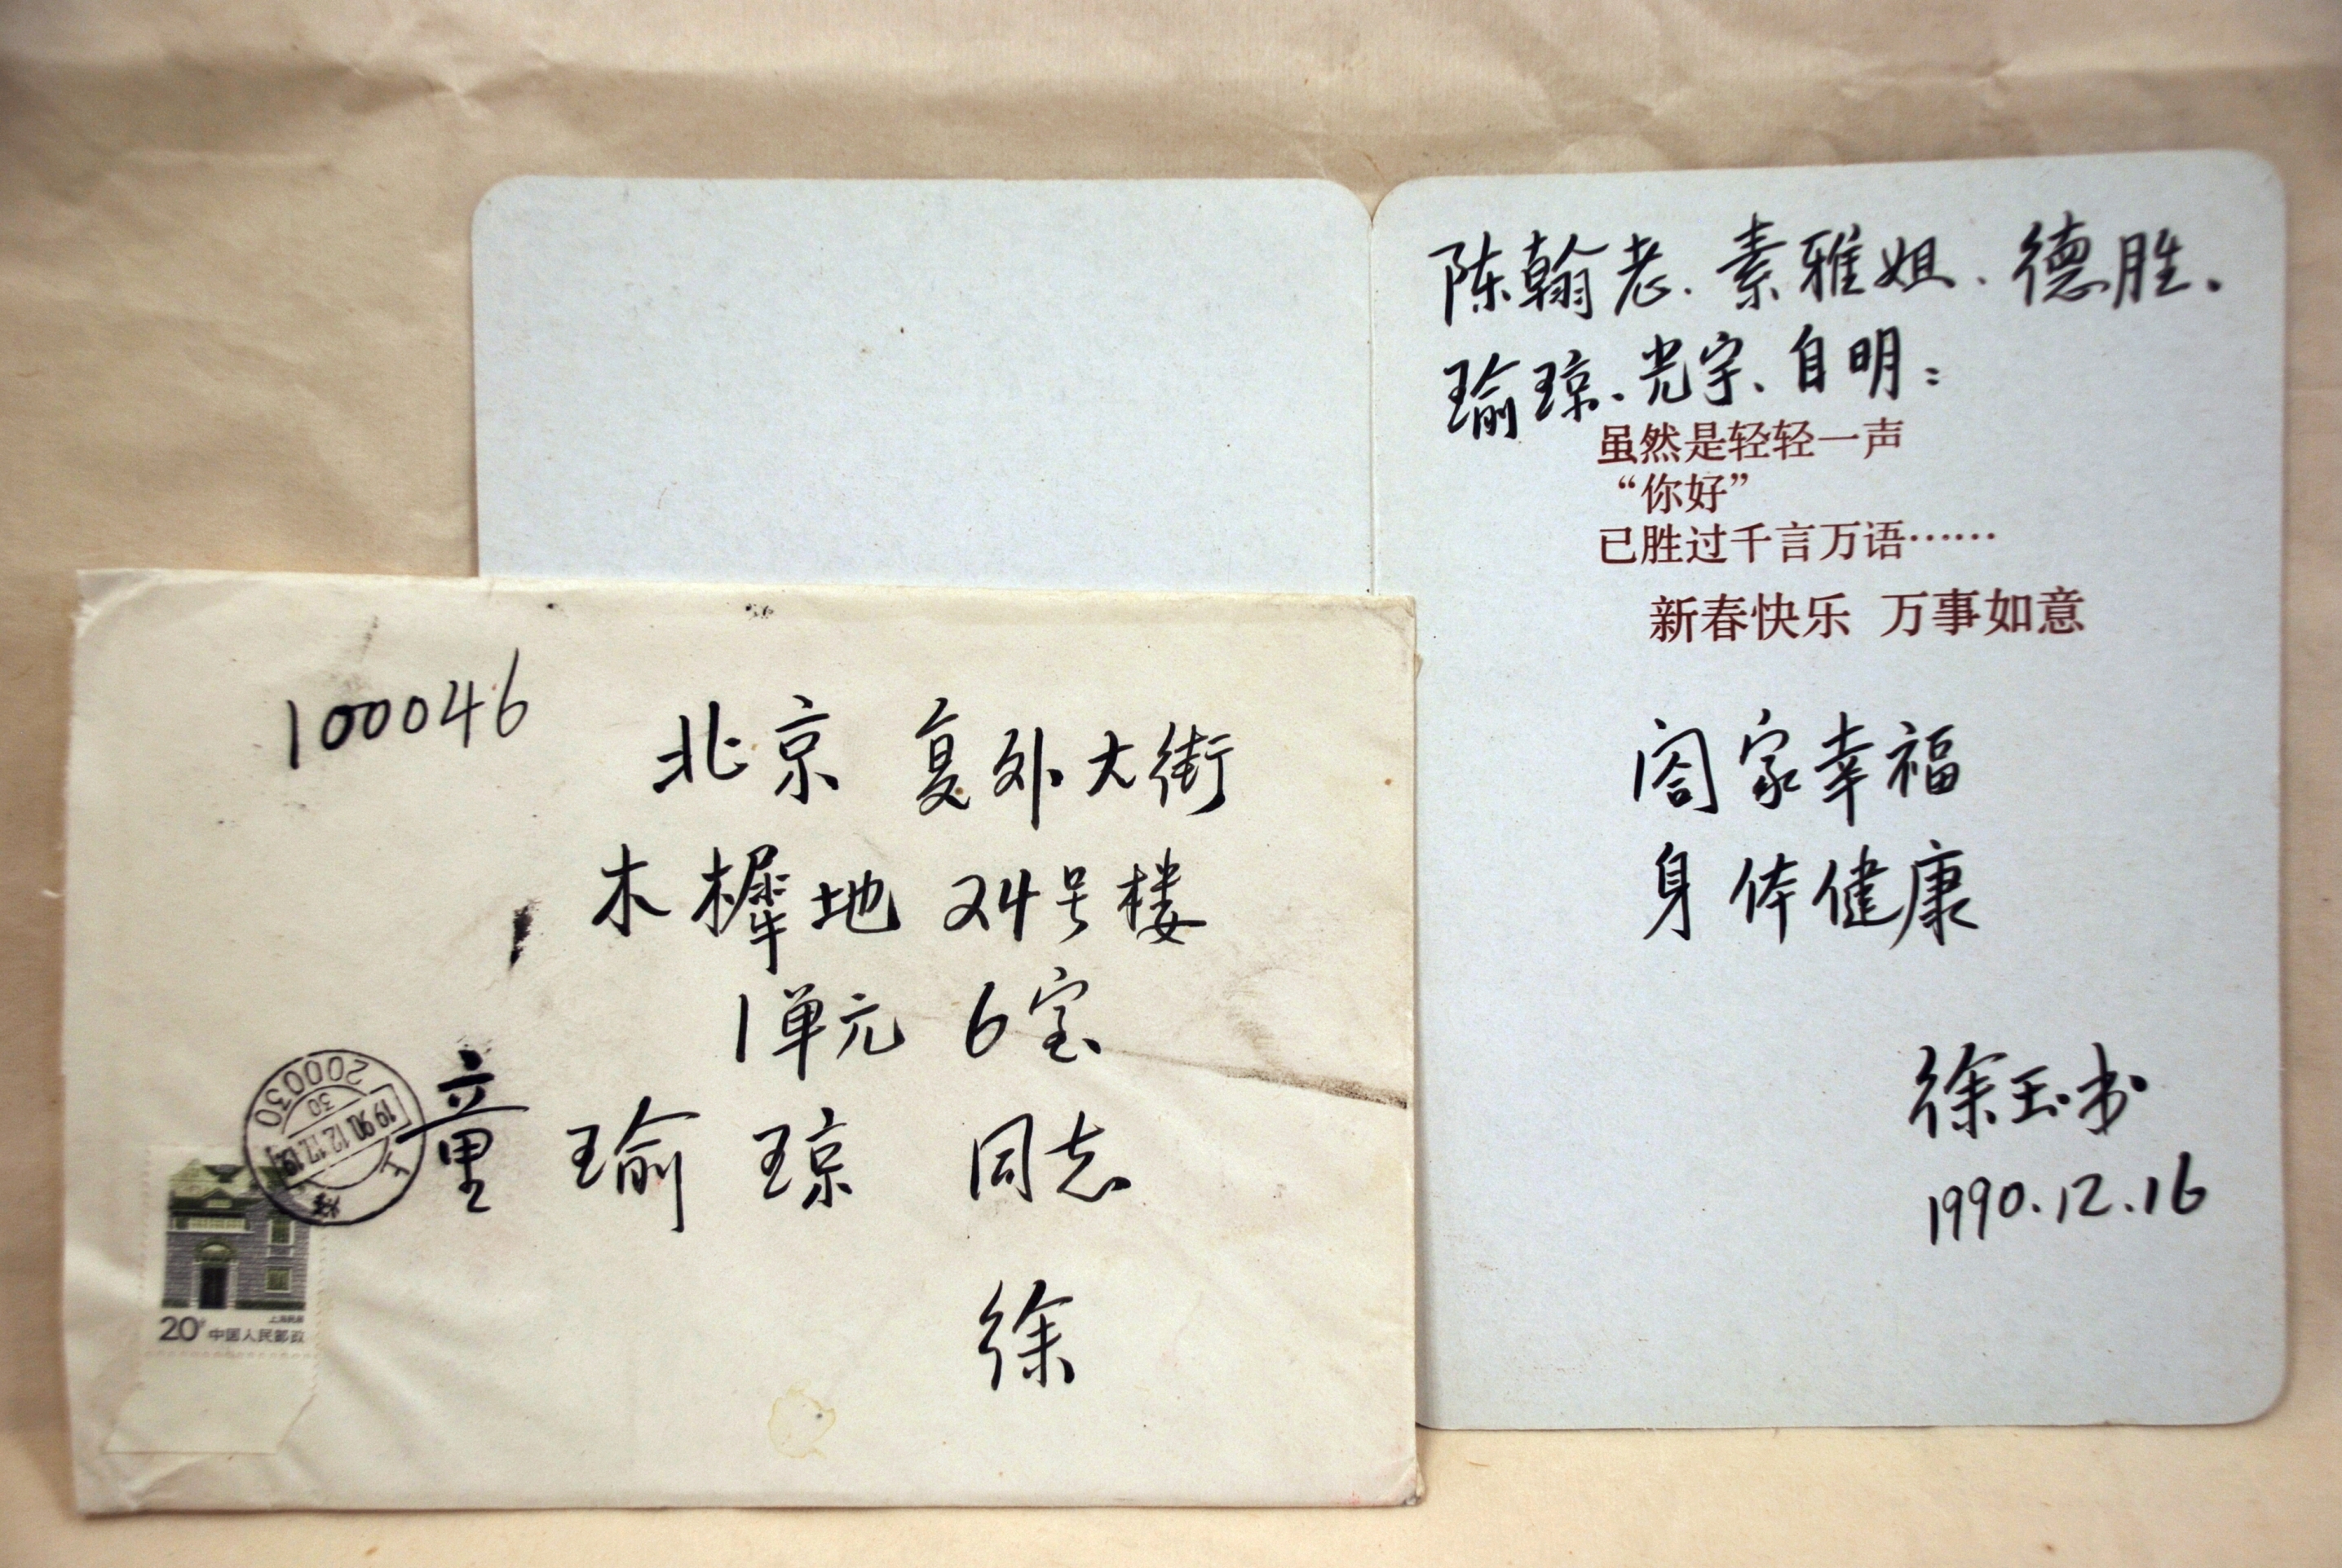 陈翰老、素雅姐、德胜、
瑜琼、光宇、自明：
虽然是轻轻一声
“你好”
已胜过千言万语……
新春快乐 万事如意
阖家幸福
身体健康
徐玉书
1990.12.16
100046
北京 复外大街
木樨地 24号楼
1单元 6室
童瑜琼 同志
徐
200030
30
1990.12.17.19
上海
上海民居
20分 中国人民邮政